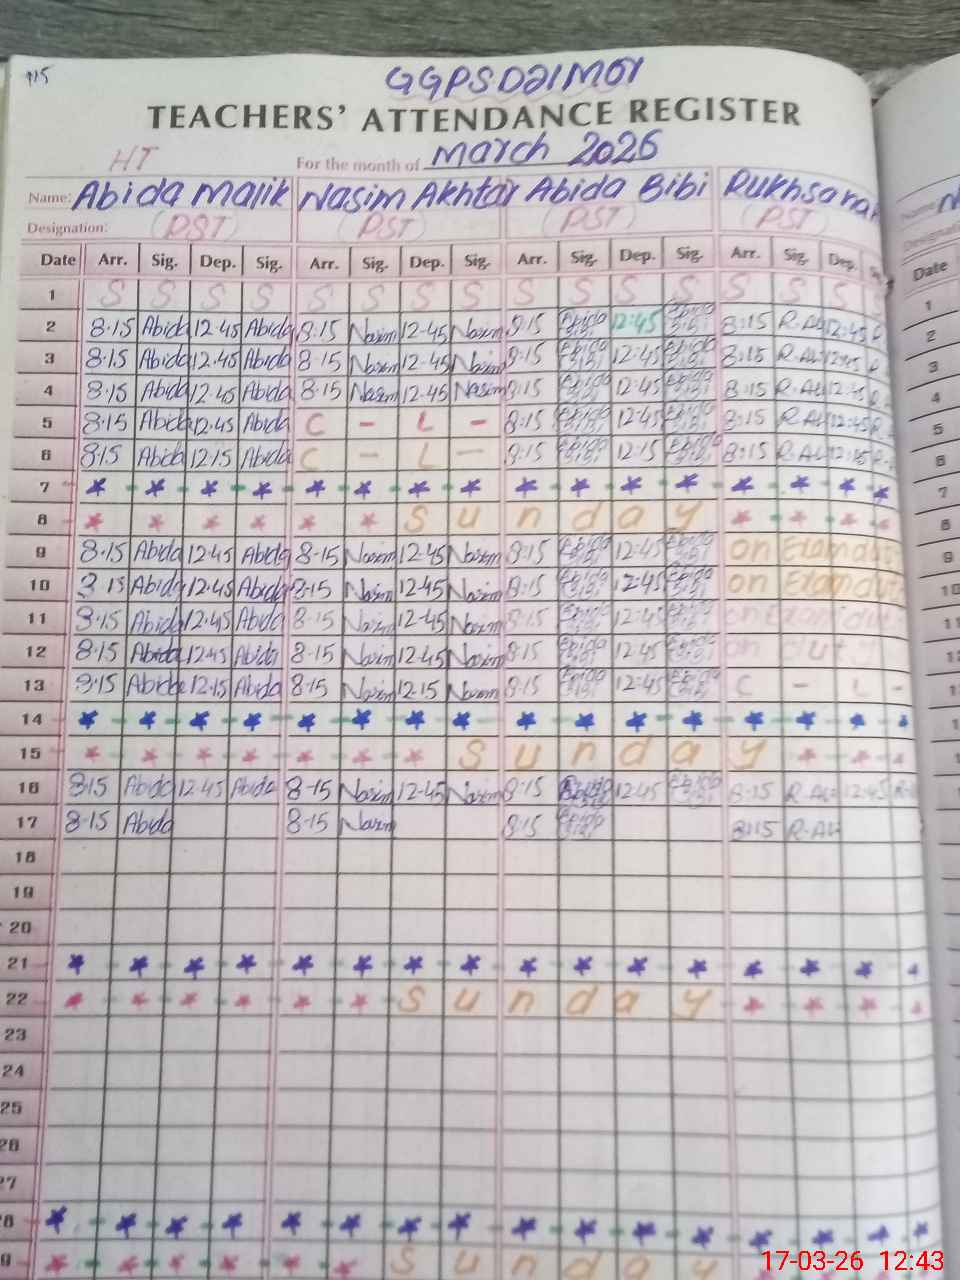 715
GGPSDaiMOI
TEACHERS' ATTENDANCE REGISTER
HT For the month of March 2026
Name: Abida Malik Nasim Akhtar Abida Bibi Rukhsana
Designation: (PST) (PST) (PST) (PST)
Date Arr. Sig. Dep. Sig. Arr. Sig. Dep. Sig. Arr. Sig. Dep. Sig. Arr. Sig. Dep.
1 S S S S S S S S S S S S S S S
2 8.15 Abida 12.45 Abida 8.15 Nasim 12-45 Nasim 8:15 Abida Bibi 12:45 Abida Bibi 8:15 R.AK 12:45
3 8.15 Abida 12.45 Abida 8-15 Nasim 12-45 Nasim 8:15 Abida Bibi 12:45 Abida Bibi 8:15 R.AK 12:45
4 8.15 Abida 12.45 Abida 8-15 Nasim 12-45 Nasim 8:15 Abida Bibi 12:45 Abida Bibi 8:15 R.AK 12:45
5 8.15 Abida 12.45 Abida C - L - 8:15 Abida Bibi 12:45 Abida Bibi 8:15 R.AK 12:45
6 8.15 Abida 12.15 Abida C - L - 8:15 Abida Bibi 12:15 Abida Bibi 8:15 R.AK 12:15
7
8 Sunday
9 8.15 Abida 12.45 Abida 8-15 Nasim 12-45 Nasim 8:15 Abida Bibi 12:45 Abida Bibi on Exam dute
10 8.15 Abida 12.45 Abida 8-15 Nasim 12-45 Nasim 8:15 Abida Bibi 12:45 Abida Bibi on Exam dute
11 8.15 Abida 12.45 Abida 8-15 Nasim 12-45 Nasim 8:15 Abida Bibi 12:45 Abida Bibi on Exam dut
12 8.15 Abida 12.45 Abida 8-15 Nasim 12-45 Nasim 8:15 Abida Bibi 12:45 Abida Bibi on duty
13 8.15 Abida 12.15 Abida 8-15 Nasim 12-15 Nasim 8:15 Abida Bibi 12:45 Abida Bibi C - L -
14
15 Sunday
16 8.15 Abida 12.45 Abida 8-15 Nasim 12-45 Nasim 8:15 Abida Bibi 12:45 Abida Bibi 8:15 R.AK 12:45
17 8.15 Abida 8-15 Nasim 8:15 Abida Bibi 8:15 R.AK
18
19
20
21
22 Sunday
23
24
25
26
27
28
29 Sunday
17-03-26 12:43